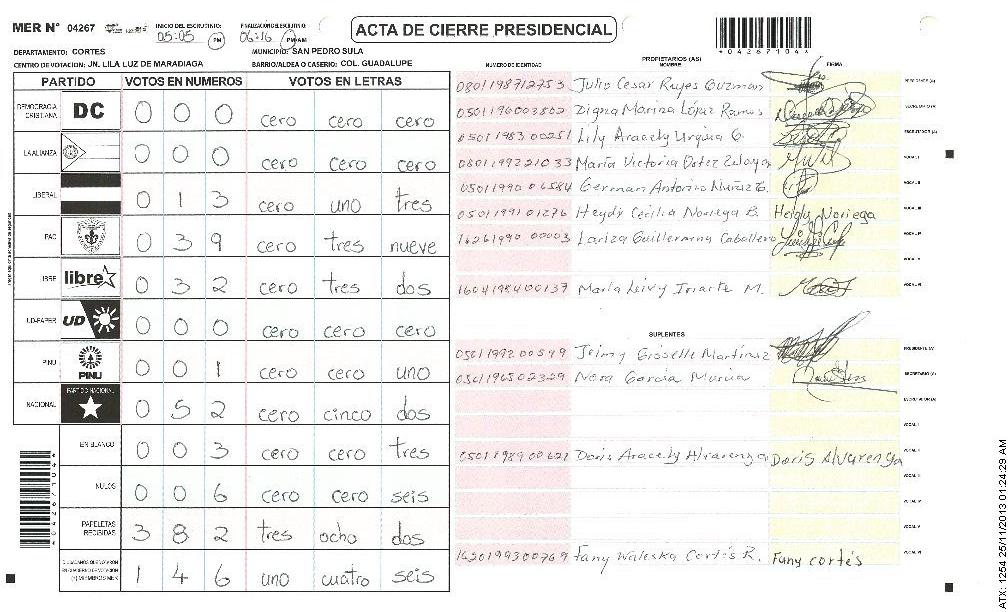 MER N° 04267 INICIO DEL ESCRUTINIO: 05:05 PM FINALIZACION DEL ESCRUTINIO: 06:16 PM AM
ACTA DE CIERRE PRESIDENCIAL
*04267104*
DEPARTAMENTO: CORTES MUNICIPIO: SAN PEDRO SULA
CENTRO DE VOTACION: JN. LILA LUZ DE MARADIAGA BARRIO/ALDEA O CASERIO: COL. GUADALUPE
PARTIDO VOTOS EN NUMEROS VOTOS EN LETRAS
DEMOCRACIA CRISTIANA DC 0 0 0 cero cero cero
LA ALIANZA 0 0 0 cero cero cero
LIBERAL 0 1 3 cero uno tres
PAC 0 3 9 cero tres nueve
LIBRE libre 0 3 2 cero tres dos
UD-FAPER UD 0 0 0 cero cero cero
PINU PINU 0 0 1 cero cero uno
NACIONAL PARTIDO NACIONAL 0 5 2 cero cinco dos
EN BLANCO 0 0 3 cero cero tres
NULOS 0 0 6 cero cero seis
PAPELETAS RECIBIDAS 3 8 2 tres ocho dos
1 4 6 uno cuatro seis
*04267104*
PROPIETARIOS (AS)
NUMERO DE IDENTIDAD NOMBRE FIRMA
0801198712753 Julio Cesar Reyes Guzman PRESIDENTE (A)
0501196003802 Digna Marina López Ramos SECRETARIO (A)
0501 1983 00251 Lily Aracely Urquia G. ESCRUTADOR (A)
0801199221033 María Victoria VOCAL I
05011990 German Antonio Nuñez VOCAL II
0501199101276 Heydy Cecilia Noriega B. Heidy Noriega VOCAL III
16261990 00003 Lariza Guillermina Caballero VOCAL IV
VOCAL V
1604198400137 María Leivy Iriarte M. VOCAL VI
SUPLENTES
05011992 00599 Jeimy Gisselle Martínez PRESIDENTE (A)
0501196502329 Nora García Murcia SECRETARIO (A)
ESCRUTADOR (A)
VOCAL I
0501 1989 00621 Doris Aracely Alvarenga Doris Alvarenga VOCAL II
VOCAL III
VOCAL IV
VOCAL V
1620199300769 Fany Waleska Cortés R. Fany cortés VOCAL VI
ATX: 1254 25/11/2013 01:24:29 AM